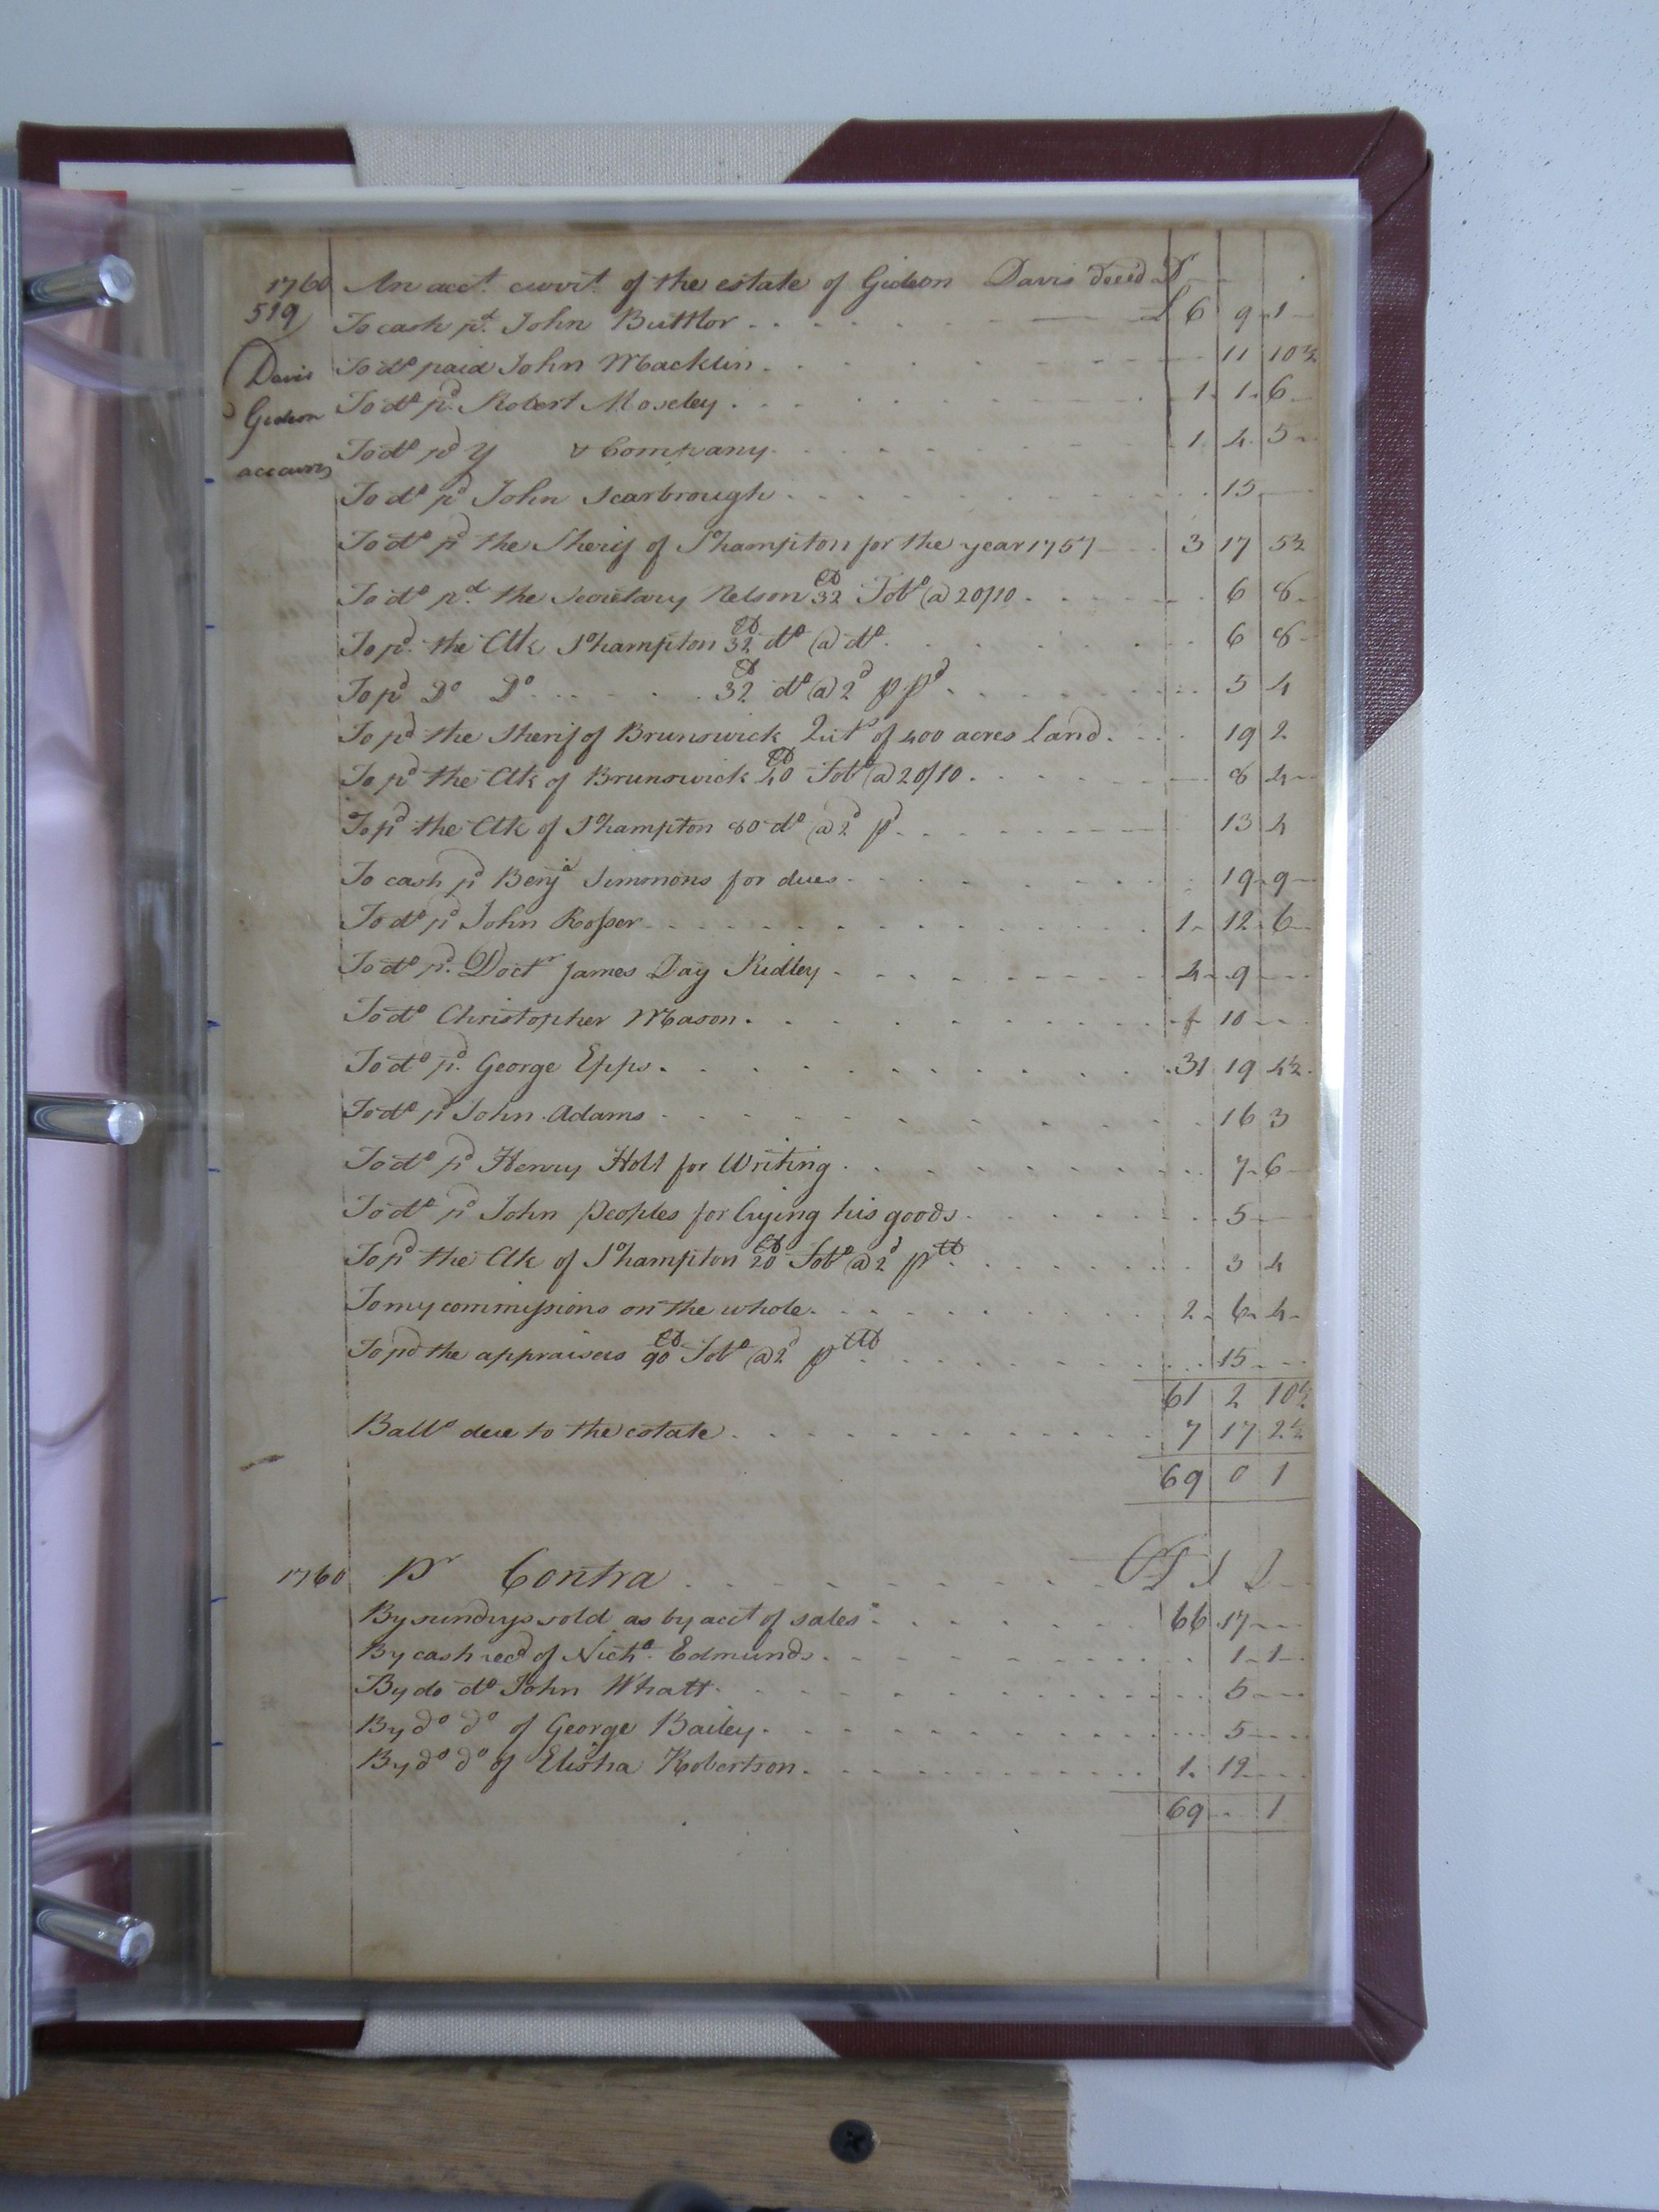 1760 An acct. currt. of the estate of Gideon Davis Deced Dr
519 To cash pd. John Buttlor £ 6 9 1
Davis To do paid John Macklin 11 10½
Gideon To do pd. Robert Moseley 1 1 6
account To do pd Y & Company 1 4 5
To do pd John Scarbrough 15
To do pd the Sherif of Shampton for the year 1757 3 17 5½
To do pd. the Secretary Nelson 32 Tobo @ 20/10 6 8
To pd. the Clk Shampton 32 do @ do 6 8
To pd Do Do 32 do @ 2d p pd 5 4
To pd the Sherif of Brunswick Quits of 400 acres Land 19 2
To pd the Clk of Brunswick 40 Tobo @ 20/10 8 4
To pd the Clk of Shampton 80 do @ 2d pd 13 4
To cash pd Benja Simmons for dues 19 9
To do pd John Rosser 1 12 6
To do pd. Doctr James Day Ridley 4 9
To do Christopher Mason 10
To do pd. George Epps 31 19 4½
To do pd John Adams 16 3
To do pd Henry Holt for Writing 7 6
To do pd John peoples for Crying his goods 5
To pd the Clk of Shampton 20 Tobo @ 2d p lb 3 4
To my commissions on the whole 2 6 4
To pd the appraisers 90 Tobo @ 2d p lb 15
61 2 10½
Ballo due to the estate 7 17 2½
69 0 1
1760 Pr Contra Cr
By sundrys sold as by acct of sales 66 17
By cash recd of Nicho. Edmunds 1 1
By do do John Whatt 5
By do do of George Bailey 5
By do do of Elisha Robertson 1 12
69 1